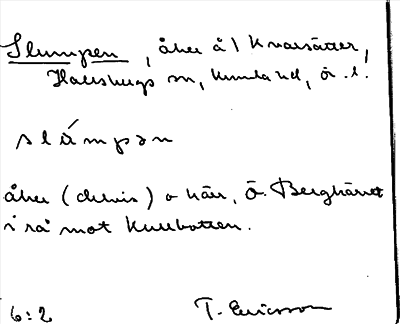 Slumpen, åker å 1 Kvarsätter,
Hallsbergs sn, Kumla hd, ö. l.
slúmpən
åker (delvis) o kärr, Ö. Berghäret
i rå mot Kullbotten.
6:2 T. Ericsson